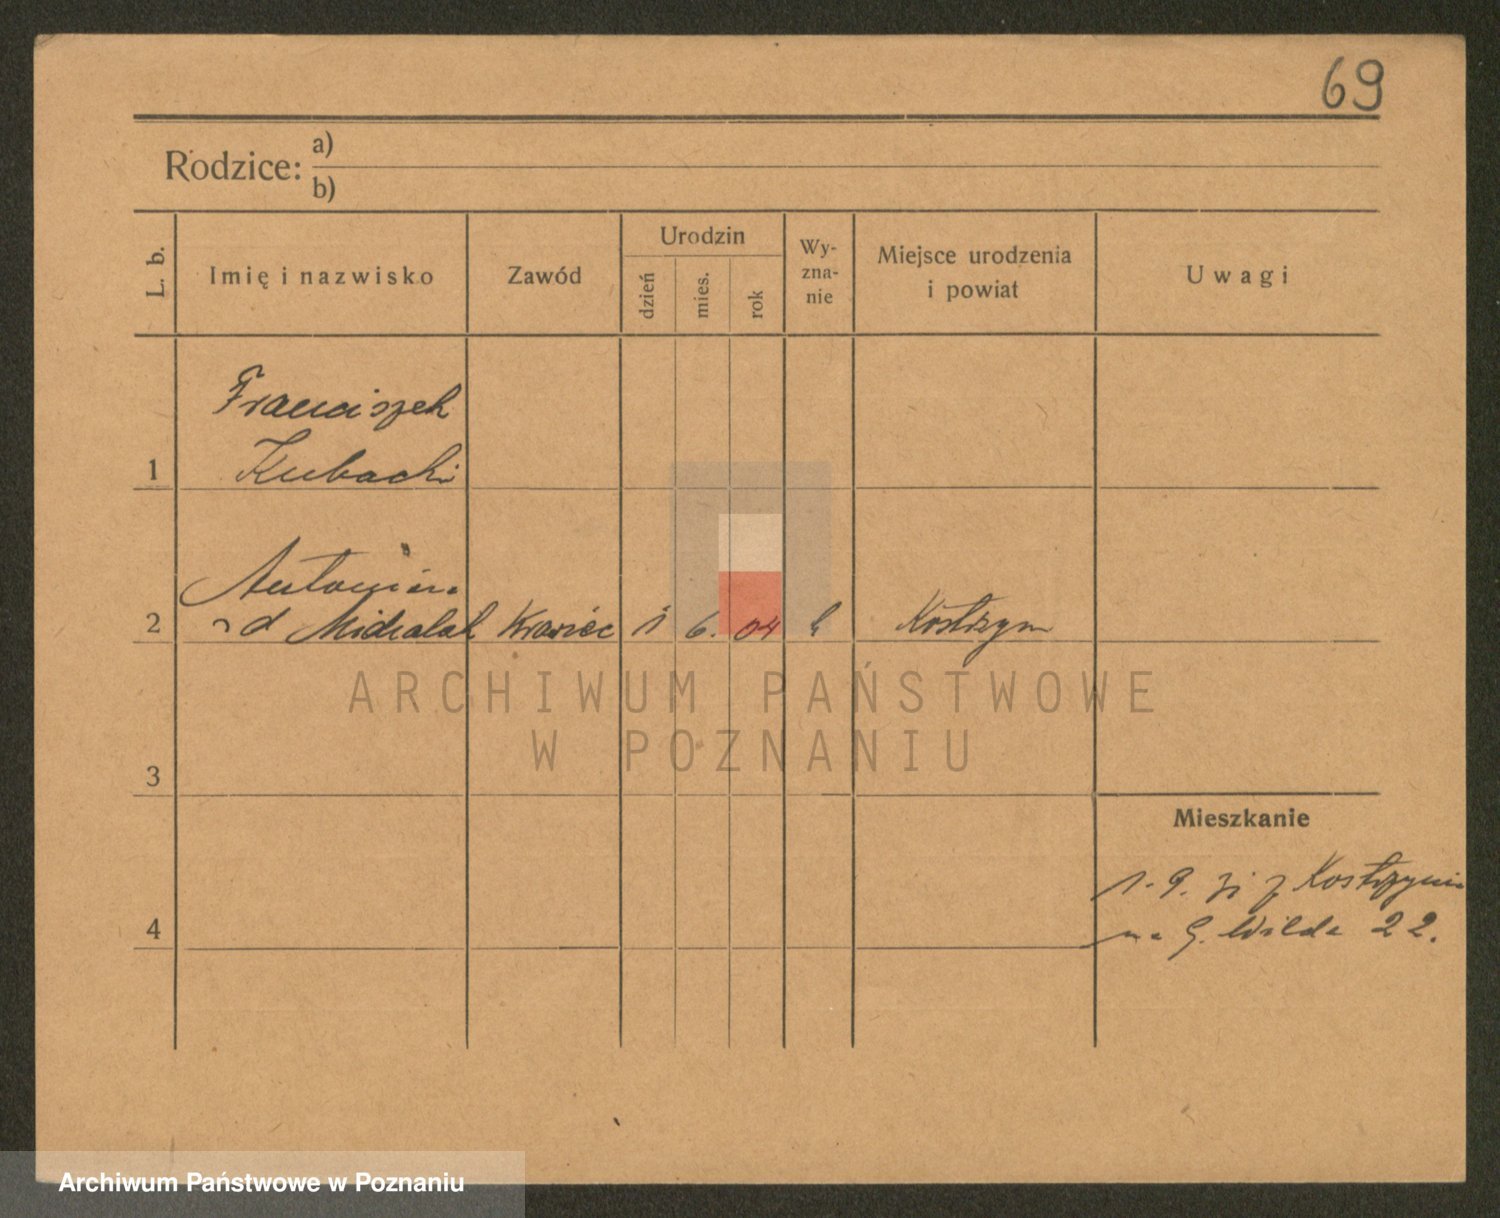 69
Rodzice: a)
b)
L. b.
Imię i nazwisko
Zawód
Urodzin
dzień
mies.
rok
Wy-
zna-
nie
Miejsce urodzenia
i powiat
Uwagi
1
Franciszek
Kubacki
2
Antonina
d Michalak Krawiec 1 6. 04 k Kostrzyn
ARCHIWUM PAŃSTWOWE
W POZNANIU
3
Mieszkanie
1. 9. z Kostrzynia
na G. Wilda 22.
4
Archiwum Państwowe w Poznaniu